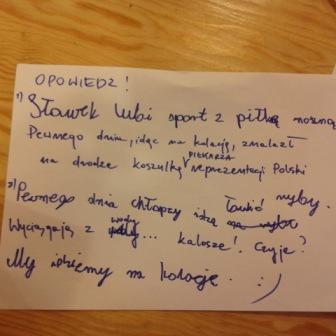 OPOWIEDZ!
1) Sławek lubi sport z piłką nożną
Pewnego dnia, idąc na kolację, znalazł
na drodze koszulkę PIŁKARZA reprezentacji Polski
2) Pewnego dnia chłopcy idą łowić ryby.
Wyciągają z wody... kalosze! Czyje?
My idziemy na kolację. :)